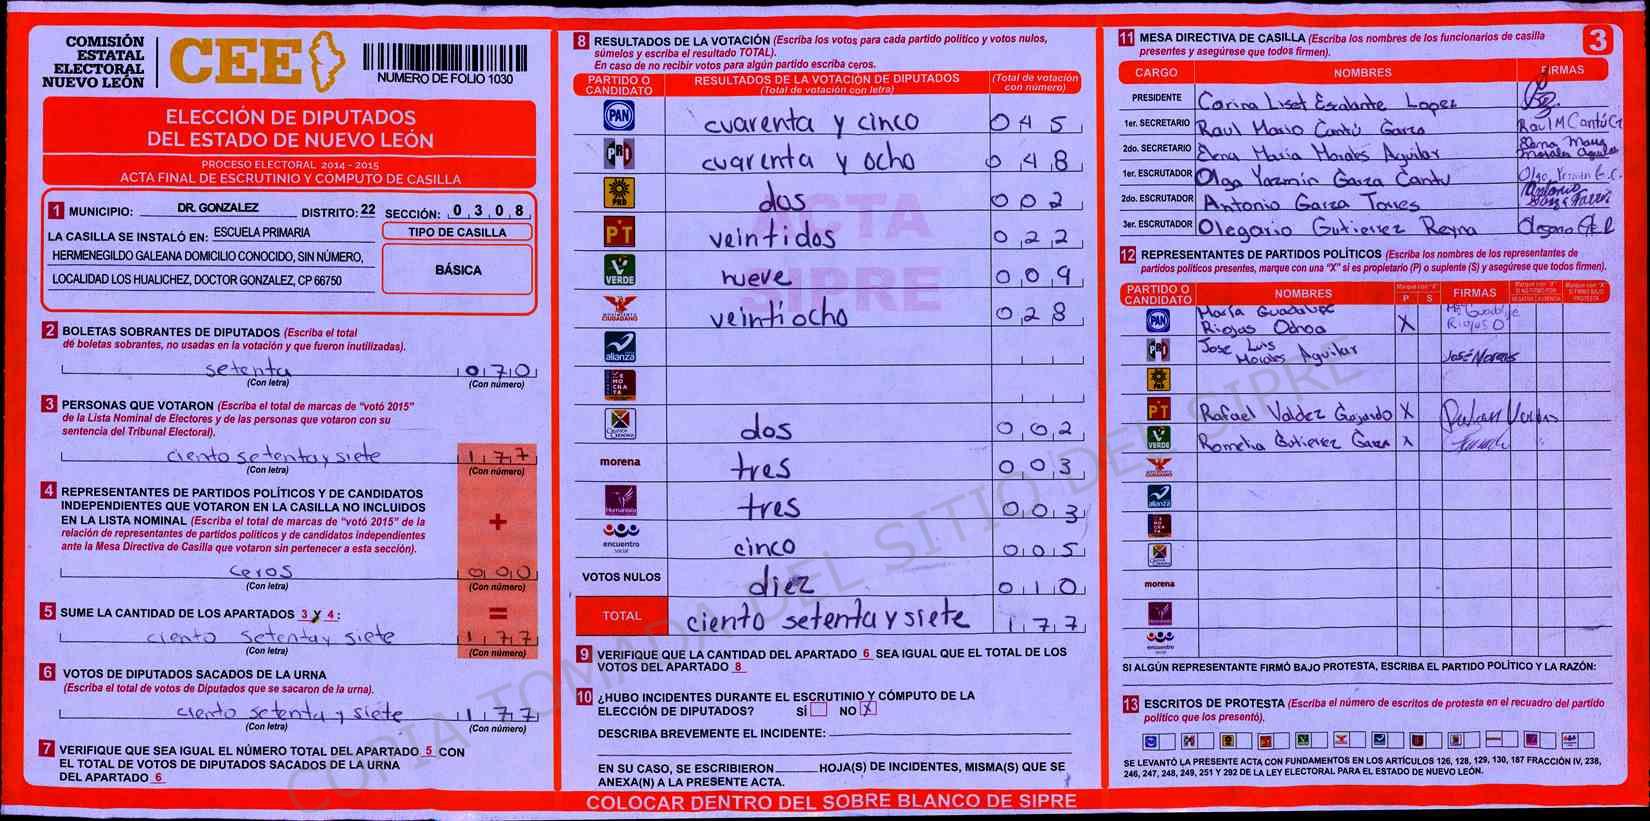 COMISIÓN
ESTATAL
ELECTORAL
NUEVO LEÓN
CEE
NUMERO DE FOLIO 1030
ELECCIÓN DE DIPUTADOS
DEL ESTADO DE NUEVO LEÓN
PROCESO ELECTORAL 2014 - 2015
ACTA FINAL DE ESCRUTINIO Y CÓMPUTO DE CASILLA
1 MUNICIPIO: DR. GONZALEZ DISTRITO: 22 SECCIÓN: 0 3 0 8
LA CASILLA SE INSTALÓ EN: ESCUELA PRIMARIA
HERMENEGILDO GALEANA DOMICILIO CONOCIDO, SIN NÚMERO,
LOCALIDAD LOS HUALICHEZ, DOCTOR GONZALEZ, CP 66750
TIPO DE CASILLA
BÁSICA
2 BOLETAS SOBRANTES DE DIPUTADOS (Escriba el total
de boletas sobrantes, no usadas en la votación y que fueron inutilizadas).
setenta 0 7 0
(Con letra) (Con número)
3 PERSONAS QUE VOTARON (Escriba el total de marcas de "votó 2015"
de la Lista Nominal de Electores y de las personas que votaron con su
sentencia del Tribunal Electoral).
ciento setenta y siete 1 7 7
(Con letra) (Con número)
4 REPRESENTANTES DE PARTIDOS POLÍTICOS Y DE CANDIDATOS
INDEPENDIENTES QUE VOTARON EN LA CASILLA NO INCLUIDOS
EN LA LISTA NOMINAL (Escriba el total de marcas de "votó 2015" de la
relación de representantes de partidos políticos y de candidatos independientes
ante la Mesa Directiva de Casilla que votaron sin pertenecer a esta sección).
+
ceros 0 0 0
(Con letra) (Con número)
5 SUME LA CANTIDAD DE LOS APARTADOS 3 y 4 :
=
ciento setenta y siete 1 7 7
(Con letra) (Con número)
6 VOTOS DE DIPUTADOS SACADOS DE LA URNA
(Escriba el total de votos de Diputados que se sacaron de la urna).
ciento setenta y siete 1 7 7
(Con letra) (Con número)
7 VERIFIQUE QUE SEA IGUAL EL NÚMERO TOTAL DEL APARTADO 5 CON
EL TOTAL DE VOTOS DE DIPUTADOS SACADOS DE LA URNA
DEL APARTADO 6
8 RESULTADOS DE LA VOTACIÓN (Escriba los votos para cada partido político y votos nulos,
súmelos y escriba el resultado TOTAL).
En caso de no recibir votos para algún partido escriba ceros.
PARTIDO O CANDIDATO RESULTADOS DE LA VOTACIÓN DE DIPUTADOS (Total de votación con letra) (Total de votación con número)
PAN cuarenta y cinco 0 4 5
PRI cuarenta y ocho 0 4 8
PRD dos 0 0 2
PT veintidos 0 2 2
VERDE nueve 0 0 9
MOVIMIENTO CIUDADANO veintiocho 0 2 8
alianza
DEMOCRATA
dos 0 0 2
morena tres 0 0 3
Humanista tres 0 0 3
encuentro social cinco 0 0 5
VOTOS NULOS diez 0 1 0
TOTAL ciento setenta y siete 1 7 7
ACTA
SIPRE
9 VERIFIQUE QUE LA CANTIDAD DEL APARTADO 6 SEA IGUAL QUE EL TOTAL DE LOS
VOTOS DEL APARTADO 8
10 ¿HUBO INCIDENTES DURANTE EL ESCRUTINIO Y CÓMPUTO DE LA
ELECCIÓN DE DIPUTADOS? SÍ NO X
DESCRIBA BREVEMENTE EL INCIDENTE:
EN SU CASO, SE ESCRIBIERON HOJA(S) DE INCIDENTES, MISMA(S) QUE SE
ANEXA(N) A LA PRESENTE ACTA.
11 MESA DIRECTIVA DE CASILLA (Escriba los nombres de los funcionarios de casilla
presentes y asegúrese que todos firmen).
3
CARGO NOMBRES FIRMAS
PRESIDENTE Carina Liset Escalante Lopez
1er. SECRETARIO Raul Mario Cantú Garza Raul M Cantú G
2do. SECRETARIO Elena María Morales Aguilar
1er. ESCRUTADOR Olga Yazmín Garza Cantu
2do. ESCRUTADOR Antonio Garza Torres
3er. ESCRUTADOR Olegario Gutierrez Reyna
12 REPRESENTANTES DE PARTIDOS POLÍTICOS (Escriba los nombres de los representantes de
partidos políticos presentes, marque con una "X" si es propietario (P) o suplente (S) y asegúrese que todos firmen).
PARTIDO O CANDIDATO NOMBRES Marque con "X" P S FIRMAS Marque con "X" SI NO FIRMÓ POR: NEGATIVA AUSENCIA Marque con "X" SI FIRMÓ BAJO PROTESTA
PAN María Guadalupe Riojas Ochoa X Ma Guadalupe Riojas O
PRI Jose Luis Morales Aguilar José Morales
PRD
PT Rafael Valdez Gajardo X
VERDE Romelia Gutierrez Garza X
alianza
morena
encuentro social
SI ALGÚN REPRESENTANTE FIRMÓ BAJO PROTESTA, ESCRIBA EL PARTIDO POLÍTICO Y LA RAZÓN:
13 ESCRITOS DE PROTESTA (Escriba el número de escritos de protesta en el recuadro del partido
político que los presentó).
SE LEVANTÓ LA PRESENTE ACTA CON FUNDAMENTOS EN LOS ARTÍCULOS 126, 128, 129, 130, 187 FRACCIÓN IV, 238,
246, 247, 248, 249, 251 Y 292 DE LA LEY ELECTORAL PARA EL ESTADO DE NUEVO LEÓN.
COLOCAR DENTRO DEL SOBRE BLANCO DE SIPRE
COPIA TOMADA DEL SITIO DEL SIPRE